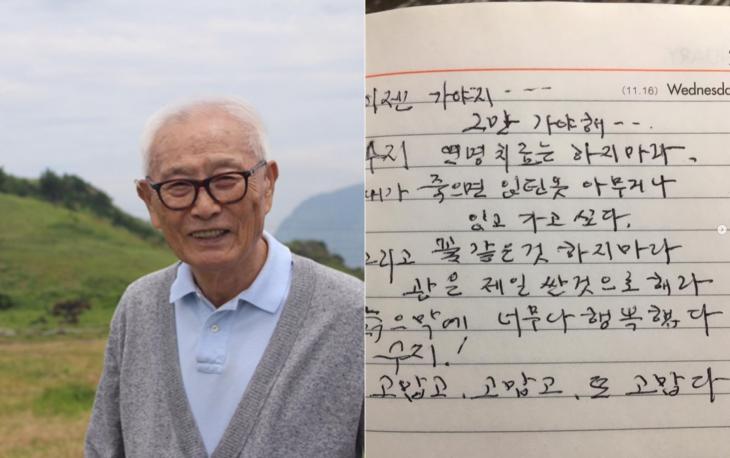 (11.16) Wednesda
이젠 가야지 ---
그만 가야해 --.
수지 연명치료는 하지마라.
내가 죽으면 입던옷 아무거나
입고 가고 싶다.
그리고 꽃 같은것 하지마라
관은 제일 싼것으로 해라
너무나 행복했다
수지!
고맙고, 고맙고, 또 고맙다